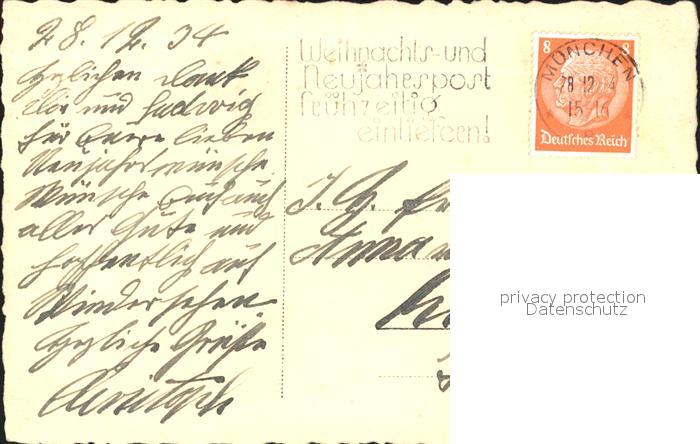 28.12.34
Herzlichen Dank
Dir und Ludwig
für Euere lieben
Neujahrswünsche
Wünsche Euch auch
alles Gute und
hoffentlich auf
Wiedersehen.
Herzliche Grüße
Weihnachts-und
Neujahrspost
frühzeitig
einliefern!
8 8
MÜNCHEN
28 12
15-16
Deutsches Reich
Anna
privacy protection
Datenschutz